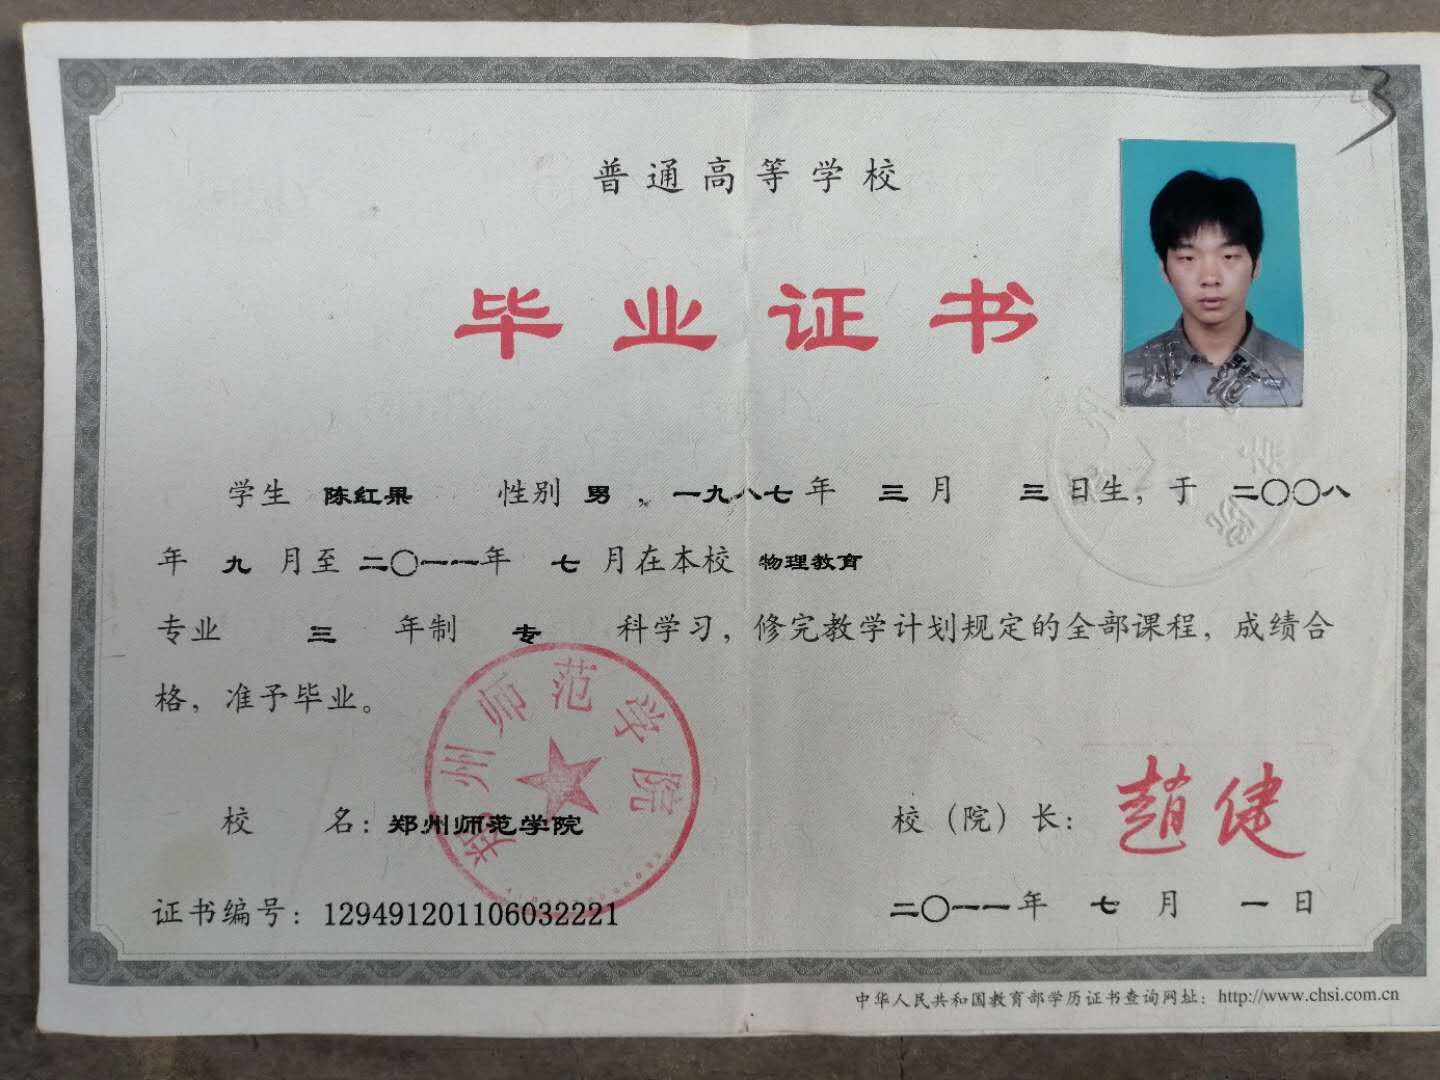 3
普通高等学校
毕业证书
学生 陈红果 性别 男 ，一九八七年 三月 三日生，于 二〇〇八
年 九 月至 二〇一一年 七 月在本校 物理教育
专业 三 年制 专 科学习，修完教学计划规定的全部课程，成绩合
格，准予毕业。
郑州师范学院
校 名：郑州师范学院
校（院）长：赵健
证书编号：129491201106032221
二〇一一年 七 月 一 日
中华人民共和国教育部学历证书查询网址：http://www.chsi.com.cn